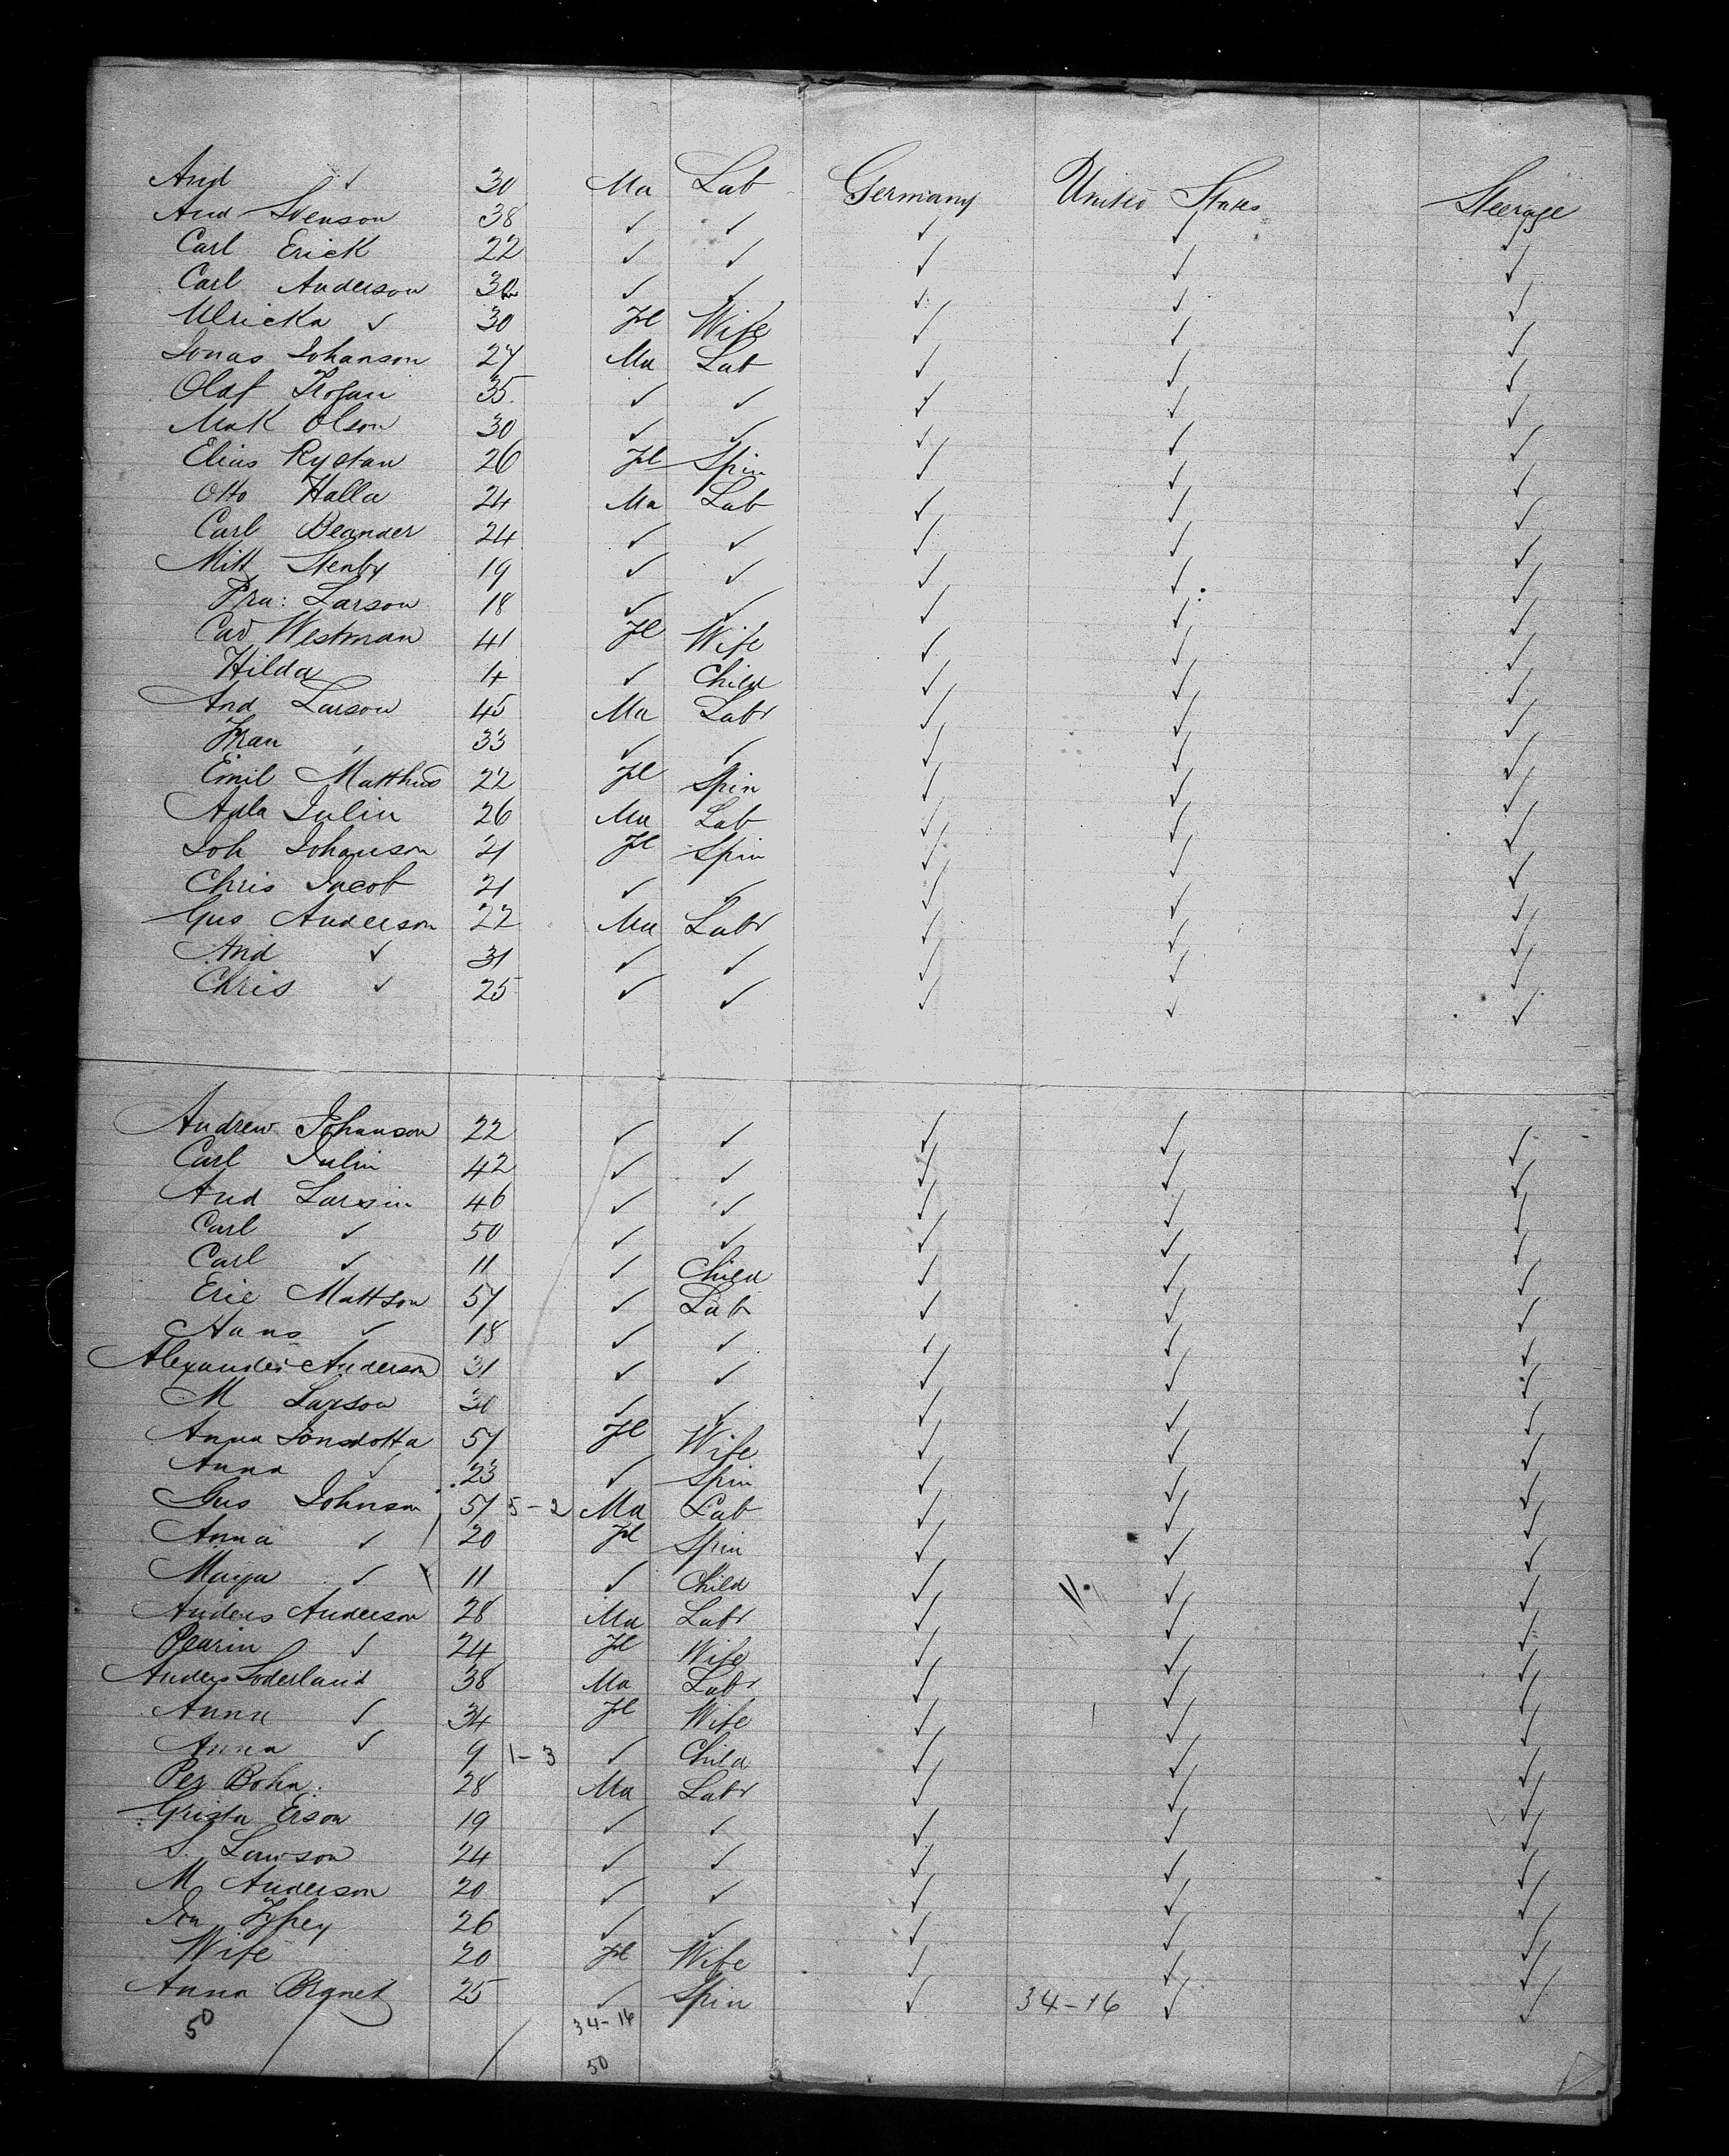 And ✓ 30 Ma Lab Germany United States Steerage
And Svenson 38 ✓ ✓ ✓ ✓ ✓
Carl Erick 22 ✓ ✓ ✓ ✓ ✓
Carl Anderson 30 ✓ ✓ ✓ ✓ ✓
Ulricka ✓ 30 Fl Wife ✓ ✓ ✓
Jonas Johanson 27 Ma Lab ✓ ✓ ✓
Olaf 35 ✓ ✓ ✓ ✓ ✓
Mak Olson 30 ✓ ✓ ✓ ✓ ✓
Elias Rystan 26 Fl Spin ✓ ✓ ✓
Otto Halla 24 Ma Lab ✓ ✓ ✓
Carl Beander 24 ✓ ✓ ✓ ✓ ✓
Mitt Stenby 19 ✓ ✓ ✓ ✓ ✓
Larson 18 ✓ ✓ ✓ ✓ ✓
Westman 41 Fl Wife ✓ ✓ ✓
Hilda 4 ✓ Child ✓ ✓ ✓
And Larson 45 Ma Labr ✓ ✓ ✓
Fran 33 ✓ ✓ ✓ ✓ ✓
Emil Matthus 22 Fl Spin ✓ ✓ ✓
Julin 26 Ma Lab ✓ ✓ ✓
Joh Johanson 21 Fl Spin ✓ ✓ ✓
Chris Jacob 21 ✓ ✓ ✓ ✓ ✓
Gus Anderson 22 Ma Labr ✓ ✓ ✓
And ✓ 31 ✓ ✓ ✓ ✓ ✓
Chris ✓ 25 ✓ ✓ ✓ ✓ ✓
Andrew Johanson 22 ✓ ✓ ✓ ✓ ✓
Carl Julin 42 ✓ ✓ ✓ ✓ ✓
And Larsin 46 ✓ ✓ ✓ ✓ ✓
Carl ✓ 50 ✓ ✓ ✓ ✓ ✓
Carl ✓ 11 ✓ Child ✓ ✓ ✓
Eric Mattson 57 ✓ Lab ✓ ✓ ✓
Hans ✓ 18 ✓ ✓ ✓ ✓ ✓
Alexander Anderson 31 ✓ ✓ ✓ ✓ ✓
M Larson 30 ✓ ✓ ✓ ✓ ✓
Anna Jonsdotta 57 Fl Wife ✓ ✓ ✓
Anna ✓ 23 ✓ Spin ✓ ✓ ✓
Gus Johnson 57 5-2 Ma Lab ✓ ✓ ✓
Anna ✓ 20 Fl Spin ✓ ✓ ✓
Maija ✓ 11 ✓ Child ✓ ✓ ✓
Anders Anderson 28 Ma Labr ✓ ✓ ✓
Pearin ✓ 24 Fl Wife ✓ ✓ ✓
Anders Soderland 38 Ma Labr ✓ ✓ ✓
Anna ✓ 34 Fl Wife ✓ ✓ ✓
Anna ✓ 9 1-3 ✓ Child ✓ ✓ ✓
Per Bohn 28 Ma Labr ✓ ✓ ✓
Grista Erson 19 ✓ ✓ ✓ ✓ ✓
S. Lawson 24 ✓ ✓ ✓ ✓ ✓
M Anderson 20 ✓ ✓ ✓ ✓ ✓
26 ✓ ✓ ✓ ✓ ✓
Wife 20 Fl Wife ✓ ✓ ✓
Anna 25 ✓ Spin ✓ 34-16 ✓ ✓
50 34-16
50